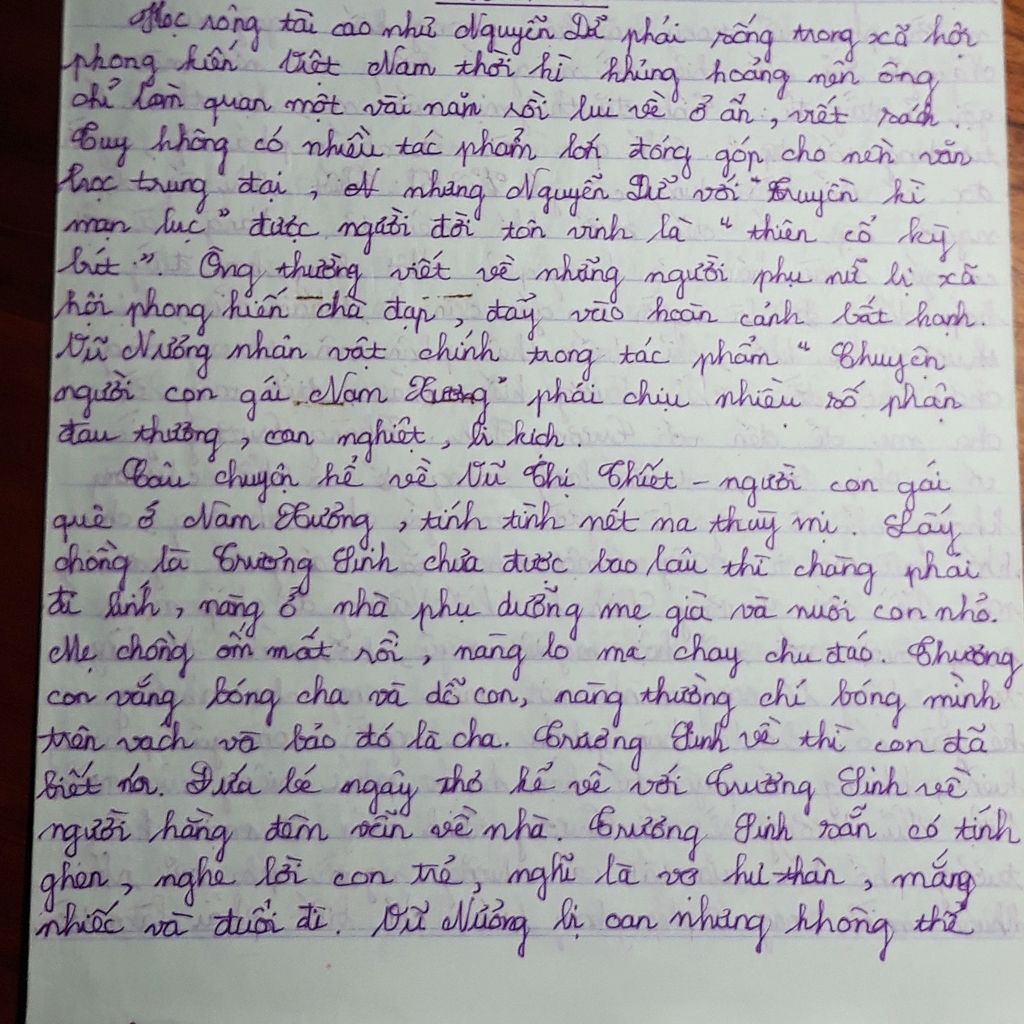 Học rông tài cao như Nguyễn Dữ phải sống trong xã hội
phong kiến Việt Nam thời kì khủng hoảng nên ông
chỉ làm quan một vài năm rồi lui về ở ẩn, viết sách.
Tuy không có nhiều tác phẩm lớn đóng góp cho nền văn
học trung đại, nhưng Nguyễn Dữ với "Truyền kì
mạn lục" được người đời tôn vinh là "thiên cổ kỳ
bút". Ông thường viết về những người phụ nữ bị xã
hội phong kiến chà đạp, đẩy vào hoàn cảnh bất hạnh.
Vũ Nương nhân vật chính trong tác phẩm "Chuyện
người con gái Nam Xương" phải chịu nhiều số phận
đau thương, oan nghiệt, bi kịch.
Câu chuyện kể về Vũ Thị Thiết - người con gái
quê ở Nam Xương, tính tình nết na thuỳ mị. Lấy
chồng là Trương Sinh chưa được bao lâu thì chàng phải
đi lính, nàng ở nhà phụ dưỡng mẹ già và nuôi con nhỏ.
Mẹ chồng ốm mất rồi, nàng lo ma chay chu đáo. Thương
con vắng bóng cha và dỗ con, nàng thường chỉ bóng mình
trên vách và bảo đó là cha. Trương Sinh về thì con đã
biết nói. Đứa bé ngây thơ kể về với Trương Sinh về
người hằng đêm vẫn về nhà. Trương Sinh sẵn có tính
ghen, nghe lời con trẻ, nghĩ là vợ hư thân, mắng
nhiếc và đuổi đi. Vũ Nương bị oan nhưng không thể